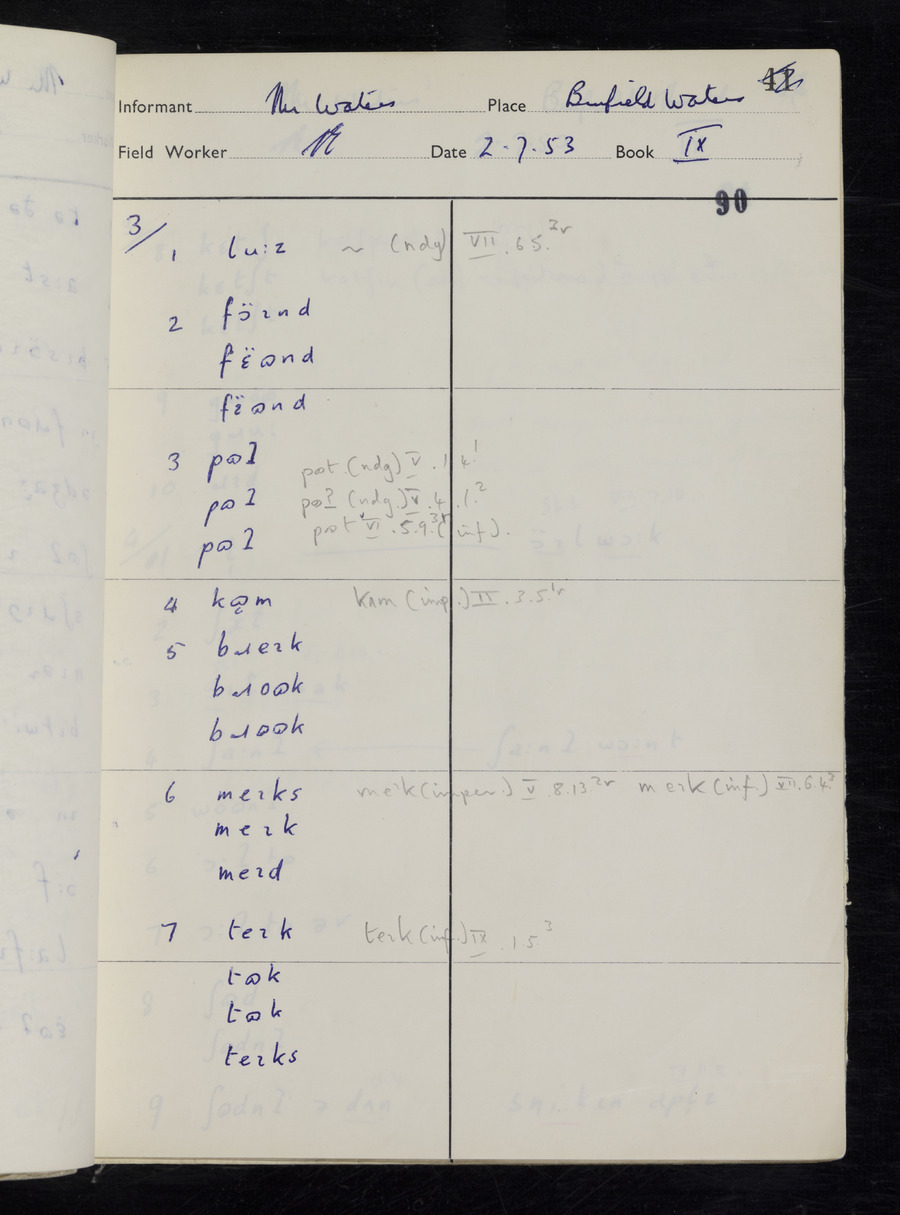 Informant Mr Waters Place Binfield Waters 41
Field Worker Date 2.7.53 Book IX
90
3/
1 lu:z ~ (ndg) VII.6.5.2r
2 fɔ̈ɪnd
fɛ̈ʊnd
fɛ̈ʊnd
3 pʊʔ pʊt (ndg) V.1.4.1
pʊʔ pʊʔ (ndg.) V.4.1.2
pʊʔ pʊt VI.5.9.3r (inf).
4 kəm kʌm (imp.) II.3.5.1r
5 bɹeɪk
bɹoʊk
bɹoʊk
6 meɪks meɪk (imper.) V.8.13.2r meɪk (inf.) VII.6.4.2
meɪk
meɪd
7 teɪk teɪk (inf.) IX.1.5.3
tʊk
tʊk
teɪks